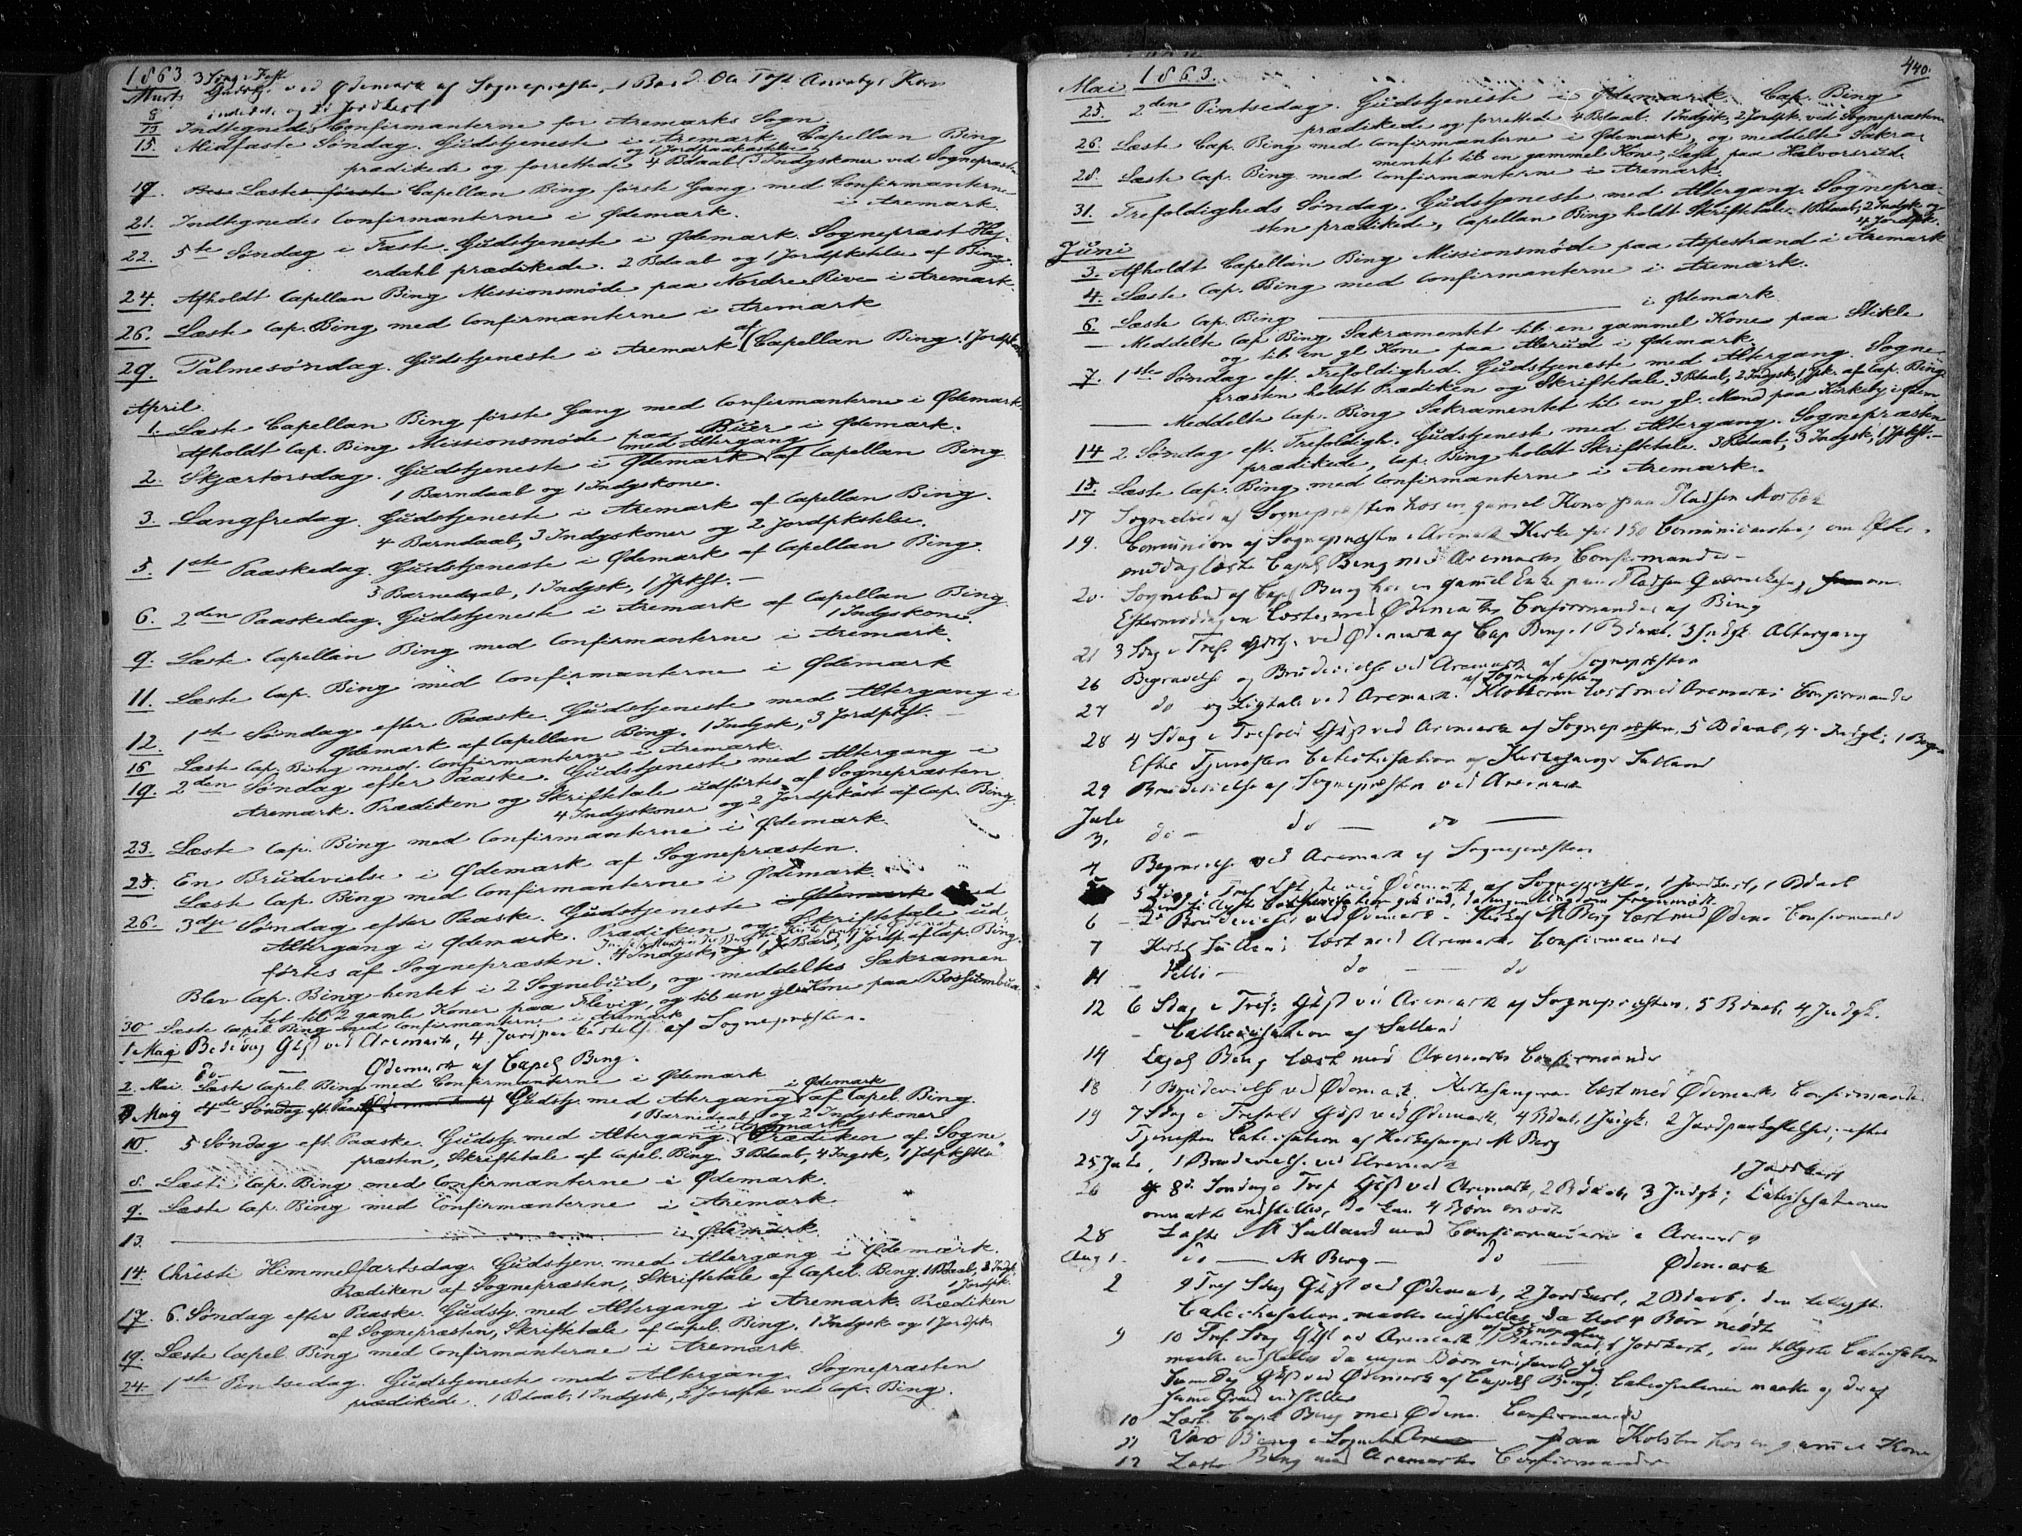 1863. 3 Søng. i Fast.
Marts Gudstj. ved Ødemark af Sognepræsten, 1 Barnd.
8 indl. og 2 Jordkast
13 Indtegnedes Confirmanterne for Aremarks Sogn.
15. Midfaste Søndag. Gudstjeneste i Aremark Capellan Bing
og 1 Jordpaakastelse
prædikede og forrettede 4 Bdaab 3 Indgskoner ved Sognepræsten
19. Læste første Capellan Bing første Gang med Confirmanterne
i Aremark.
21. Indtegnedes Confirmanterne i Ødemark.
22. 5te Søndag i Faste. Gudstjeneste i Ødemark. Sognepræst Hej-
erdahl prædikede. 2 Bdaab og 1 Jordpkstelse af Bing.
24. Afholdt Capellan Bing Missionsmøde paa Nordre Rive i Aremark.
26. Læste Cap. Bing med Confirmanterne i Aremark
29. Palmesøndag. Gudstjeneste i Aremark af Capellan Bing. 1 Jordpk
April.
1. Læste Capellan Bing første Gang med Confirmanterne i Ødemark.
Afholdt Cap. Bing Missionsmøde paa Buer i Ødemark.
med Altergang
2. Skjærtorsdag. Gudstjeneste i Ødemark af Capellan Bing
1 Barndaab og 1 Indgskone.
3. Langfredag. Gudstjeneste i Aremark af Capellan Bing.
4 Barndaab, 3 Indgskoner og 2 Jordpkstelse.
5. 1ste Paaskedag. Gudstjeneste i Ødemark af Capellan Bing.
3 Barnedaab, 1 Indgsk, 1 Jpkst. —
6. 2den Paaskedag. Gudstjeneste i Aremark af Capellan Bing
1 Indgskone.
9. Læste Capellan Bing med Confirmanterne i Aremark.
11. Læste Cap. Bing med Confirmanterne i Ødemark
12. 1ste Søndag efter Paaske. Gudstjeneste med Altergang i
Ødemark af Capellan Bing. 1 Indgsk, 3 Jordpkst. —
16 Læste Cap. Bing med Confirmanterne i Aremark.
19. 2den Søndag efter Paaske. Gudstjeneste med Altergang i
Aremark. Prædiken og Skriftetale udførtes af Sognepræsten
4 Indgskoner og 2 Jordpkast af Cap. Bing.
23. Læste Cap. Bing med Confirmanterne i Ødemark.
25. En Brudevielse i Ødemark af Sognepræsten.
Læste Cap. Bing med Confirmanterne i Ødemark.
26. 3die Søndag efter Paaske. Gudstjeneste i Ødemark med
Altergang i Ødemark. Prædiken og Skriftetale ud-
førtes af Sognepræsten. 4 Indgsk, og 1 Jordp. af Cap. Bing.
Blev Cap. Bing hentet i 2 Sognebud, og meddeltes Sakramen
tet til 2 gamle Koner paa Flevig, og til en gl Kone paa
30 Læste Capel. Bing med Confirmanterne i Aremark
1 Mai Bededag Gtj ved Aremark, 4 Jordpaakastels af Sognepræsten.
Do — Ødemark af Capel Bing.
2. Mai. Læste Capel. Bing med Confirmanterne i Ødemark
i Ødemark
3 Maj 4de Søndag eft. Paaske Gudstj. med Altergang af Capel. Bing.
1 Barnedaab og 2 Indgskoner
i Aremark
10. 5 Søndag eft. Paaske. Gudstj. med Altergang. Prædiken af Sogne-
præsten, Skriftetale af Capel. Bing. 3 Bdaab, 4 Ingsk, 1 Jdpkst
8. Læste Cap. Bing med Confirmanterne i Ødemark.
9. Læste Cap. Bing med Confirmanterne i Aremark
13. — i Ødemark.
14. Christi Himmelfartsdag. Gudstjen. med Altergang i Ødemark.
Prædiken af Sognepræsten, Skriftetale af Capel. Bing. 1 Bdaab, 3 Indgk
1 Jordpk.
17. 6. Søndag efter Paaske. Gudstj. med Altergang i Aremark. Prædiken
af Sognepræsten, Skriftetale af Capel. Bing. 1 Indgsk og 1 Jordpk
19. Læste Capel. Bing med Confirmanterne i Aremark.
24. 1ste Pintsedag. Gudstjeneste med Altergang. Sognepræsten
prædikede. 1 Bdaab, 1 Indgsk, 2 Jordpk ved Cap. Bing.
440.
Mai 1863.
25. 2den Pintsedag. Gudstjeneste i Ødemark. Cap. Bing
prædikede og forrettede 4 Bdaab. 1 Indgsk, 2 Jordpk. ved Sognepræsten
26. Læste Cap. Bing med Confirmanterne i Ødemark, og meddelte Sakra-
mentet til en gammel Kone, Lægd paa Halvorsrud.
28. Læste Cap. Bing med Confirmanterne i Aremark.
31. Trefoldigheds Søndag. Gudstjeneste med Altergang. Sognepræ-
sten prædikede, Capellan Bing holdt Skriftetale. 1 Bdaab, 2 Indgsk og
4 Jordpk.
Juni
3. Afholdt Capellan Bing Missionsmøde paa Aspestrand i Aremark
4. Læste Cap. Bing med Confirmanterne i Aremark.
6. Læste Cap. Bing — i Ødemark.
— Meddelte Cap Bing Sakramentet til en gammel Kone paa Stikle
og til en gl. Kone paa i Ødemark.
7. 1ste Søndag eft. Trefoldighed. Gudstjeneste med Altergang. Sogne-
præsten holdt Prædiken og Skriftetale. 3 Bdaab, 2 Indgsk, 1 Jpk. af Cap. Bing.
— Meddelte Cap. Bing Sakramentet til en gl. Mand paa Kirkeby i Ødem.
14 2 Søndag eft. Trefoldigh. Gudstjeneste med Altergang. Sognepræsten
prædikede, Cap. Bing holdt Skriftetale. 3 Bdaab, 3 Indgsk, 1 Jpkst. —
18. Læste Cap. Bing med Confirmanterne i Aremark.
17 Sognebud af Sognepræsten hos en gamel Kone paa Pladsen
19. Comunion af Sognepræsten i Aremark Kirke for 150 Comunicanter; om Efter-
middag læste Capel Bing med Aremarks Confirmander —
20. Sognebud af Capl Bing hos en gamel Enke paa Pladsen om
Eftermiddagen læstes med Ødemarks Confirmander af Bing
21 3 Sdag i Tref. Gtj. ved Ødemark af Cap Bing. 1 Bdaab. 3 Indgk. Altergang
26 Begravelse og Brudevielse ved Aremark af Sognepræsten
af Sognepræsten
27 do og Ligtale ved Aremark. Klokkeren læst med Aremarks Confirmander
28 4 Sdag i Trefold Gtj ved Aremark af Sognepræsten, 5 Bdaab, 4 Indgk; 1 Begra
Efter Tjenesten Catechisation af Kirkesanger Salland
29 Brudevielse af Sognepræsten ved Aremark
Juli
3. do — do — do —
4 Begravelse ved Aremark af Sognepræsten
5 5 Søng i Tref. Gtj ved Ødemark af Sognepræsten, 1 Jordkast, 1 Bdaab
da ingen Ungdom fremmødt
6 2 Brudevielser ved Ødemark — Kirkes M Berg læst med Ødem. Confirmander
7 Kirkes Salland læst med Aremarks Confirmander
11 — do — do
12 6 Sdag i Tref. Gtj ved Aremark af Sognepræsten. 5 Bdaab, 4 Indgk.
— Catechisation af Salland
14 Capel Bing læst med Aremarks Confirmander
18 1 Brudevielse ved Ødemark. Kirkesangeren læst med Ødemarks Confirmander
19 7 Sdag i Trefold Gtj ved Ødemark, 4 Bdaab, 1 Indgk. 2 Jordpaakastelser; efter
Tjenesten Catechisation af Kirkesanger M Berg
25 Juli. 1 Brudevielse ved Aremark
1 Jordkast
26 8de Søndag i Tref Gtj ved Aremark, 2 Bdaab, 3 Indgk; Catechisationen
maatte indstilles, da kun 4 Børn mødte
28 Læste M Salland med Confirmanderne i Aremark
Aug 1. do — M Berg — do — Ødemark
2 9 Tref Sdag Gtj ved Ødemark, 2 Jordkast, 2 Bdaab, den tillyste
Catechisation maatte indstilles, da blot 4 Børn mødte
af Sognepræsten
9 10 Tref. Sdag Gtj ved Aremark, Barnedaab, 1 Jordkast, den tillyste Catechisation
maatte indstilles da ingen Børn indfandt sig
Samme Dag Gtj ved Ødemark af Capell Bing; Catechisationen maatte og der af
samme Grund indstilles
10 Læst Capel Bing med Ødem. Confirmander
11 Var Bing i Sognebud paa Kolstad hos en gamel Kone
12 Læste Bing med Aremarks Confirmander